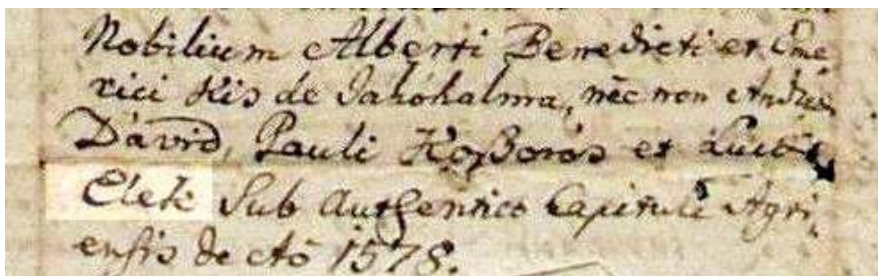 Nobilium Alberti Benedicti et Eme
rici Kis de Jakóhalma, nec non Andreæ
Dávid, Pauli Koßorós et
Elek Sub Authentico Capituli Agri,
ensis de Aō 1578.